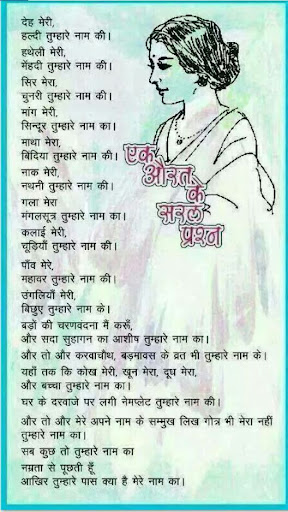 देह मेरी,
हल्दी तुम्हारे नाम की।
हथेली मेरी,
मेंहदी तुम्हारे नाम की।
सिर मेरा,
चुनरी तुम्हारे नाम की।
मांग मेरी,
सिन्दूर तुम्हारे नाम का।
माथा मेरा,
बिंदिया तुम्हारे नाम की।
नाक मेरी,
नथनी तुम्हारे नाम की।
गला मेरा
मंगलसूत्र तुम्हारे नाम का।
कलाई मेरी,
चूड़ियाँ तुम्हारे नाम की।
पाँव मेरे,
महावर तुम्हारे नाम की।
उंगलियाँ मेरी,
बिछुए तुम्हारे नाम के।
बड़ों की चरणवंदना मैं करूँ,
और सदा सुहागन का आशीष तुम्हारे नाम का।
और तो और करवाचौथ, बड़मावस के व्रत भी तुम्हारे नाम के।
यहाँ तक कि कोख मेरी, खून मेरा, दूध मेरा,
और बच्चा तुम्हारे नाम का।
घर के दरवाजे पर लगी नेमप्लेट तुम्हारे नाम की।
और तो और मेरे अपने नाम के सम्मुख लिख गोत्र भी मेरा नहीं
तुम्हारे नाम का।
सब कुछ तो तुम्हारे नाम का
नम्रता से पूछती हूँ
आखिर तुम्हारे पास क्या है मेरे नाम का।
एक
औरत
के
सरल
प्रश्न